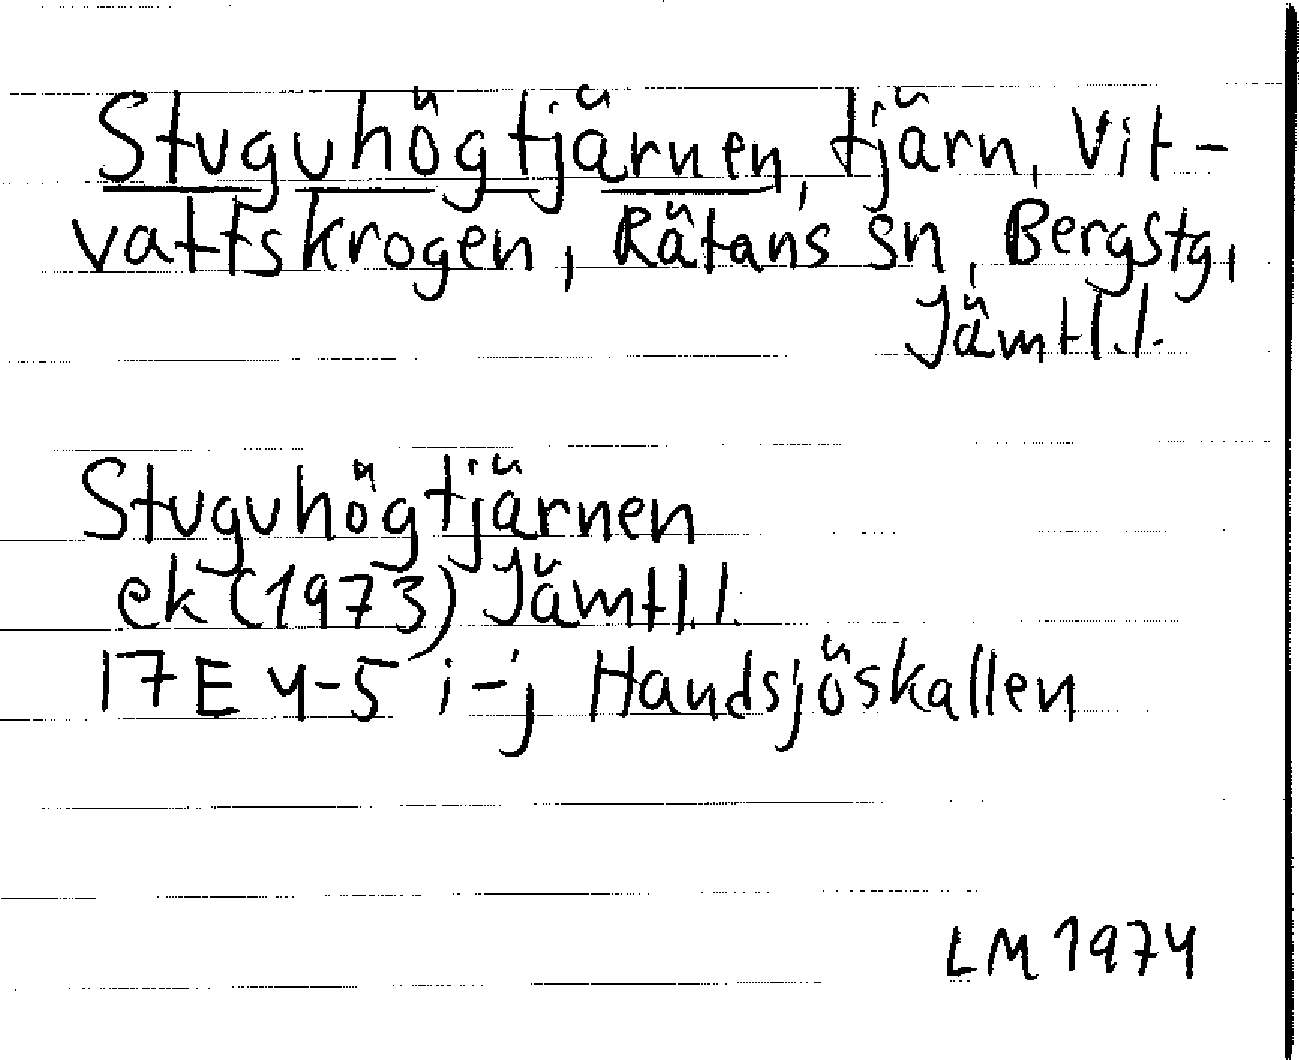 Stuguhögtjärnen, tjärn, Vit-
vattskrogen, Rätans sn, Bergstg,
Jämtl.l.
Stuguhögtjärnen
ek (1973) Jämtl.l.
17E 4-5 i-j Handsjöskallen
LM 1974